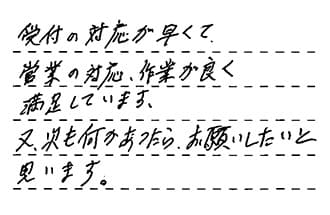 受付の対応が早くて、
営業の対応、作業が良く
満足しています、
又、次も何かあったら、お願いしたいと
思います。